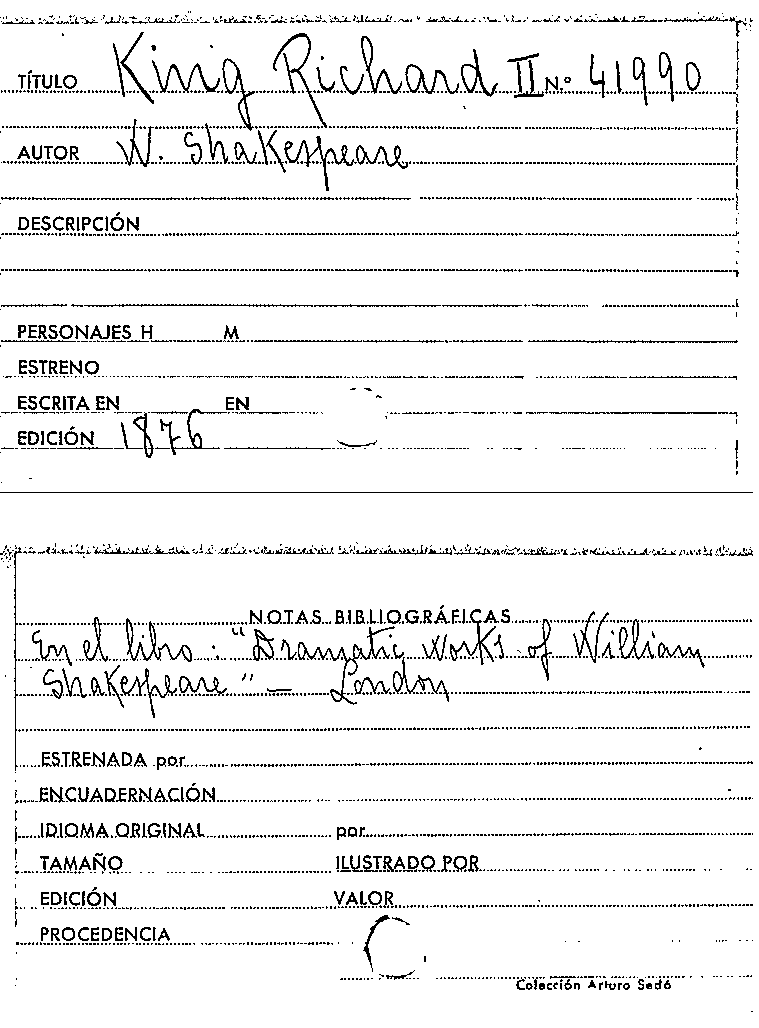 TÍTULO King Richard II N.º 41990
AUTOR W. Shakespeare
DESCRIPCIÓN
PERSONAJES H M
ESTRENO
ESCRITA EN EN
EDICIÓN 1876
NOTAS BIBLIOGRÁFICAS
En el libro: "Dramatic Works of William
Shakespeare" – London
ESTRENADA por
ENCUADERNACIÓN
IDIOMA ORIGINAL por
TAMAÑO ILUSTRADO POR
EDICIÓN VALOR
PROCEDENCIA
Colección Arturo Sedó